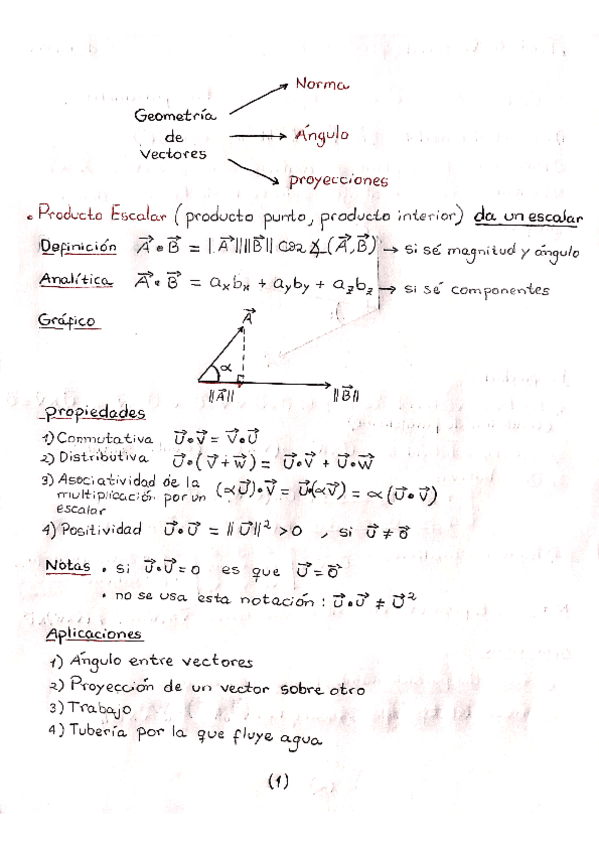 Norma
Geometría
de
vectores
Ángulo
proyecciones
• Producto Escalar (producto punto, producto interior) da un escalar
Definición A⃗ • B⃗ = ||A⃗|| ||B⃗|| cos ∡(A⃗,B⃗) → si sé magnitud y ángulo
Analítica A⃗ • B⃗ = axbx + ayby + azbz → si sé componentes
Gráfico
A⃗
α
||A⃗||
||B⃗||
propiedades
1) Conmutativa U⃗•V⃗ = V⃗•U⃗
2) Distributiva U⃗•(V⃗+W⃗) = U⃗•V⃗ + U⃗•W⃗
3) Asociatividad de la
multiplicación por un
escalar
(αU⃗)•V⃗ = U⃗(αV⃗) = α(U⃗•V⃗)
4) Positividad U⃗•U⃗ = ||U⃗||² > 0 , si U⃗ ≠ 0⃗
Notas • si U⃗•U⃗ = 0 es que U⃗ = 0⃗
• no se usa esta notación : U⃗•U⃗ ≠ U⃗²
Aplicaciones
1) Ángulo entre vectores
2) Proyección de un vector sobre otro
3) Trabajo
4) Tubería por la que fluye agua
(1)